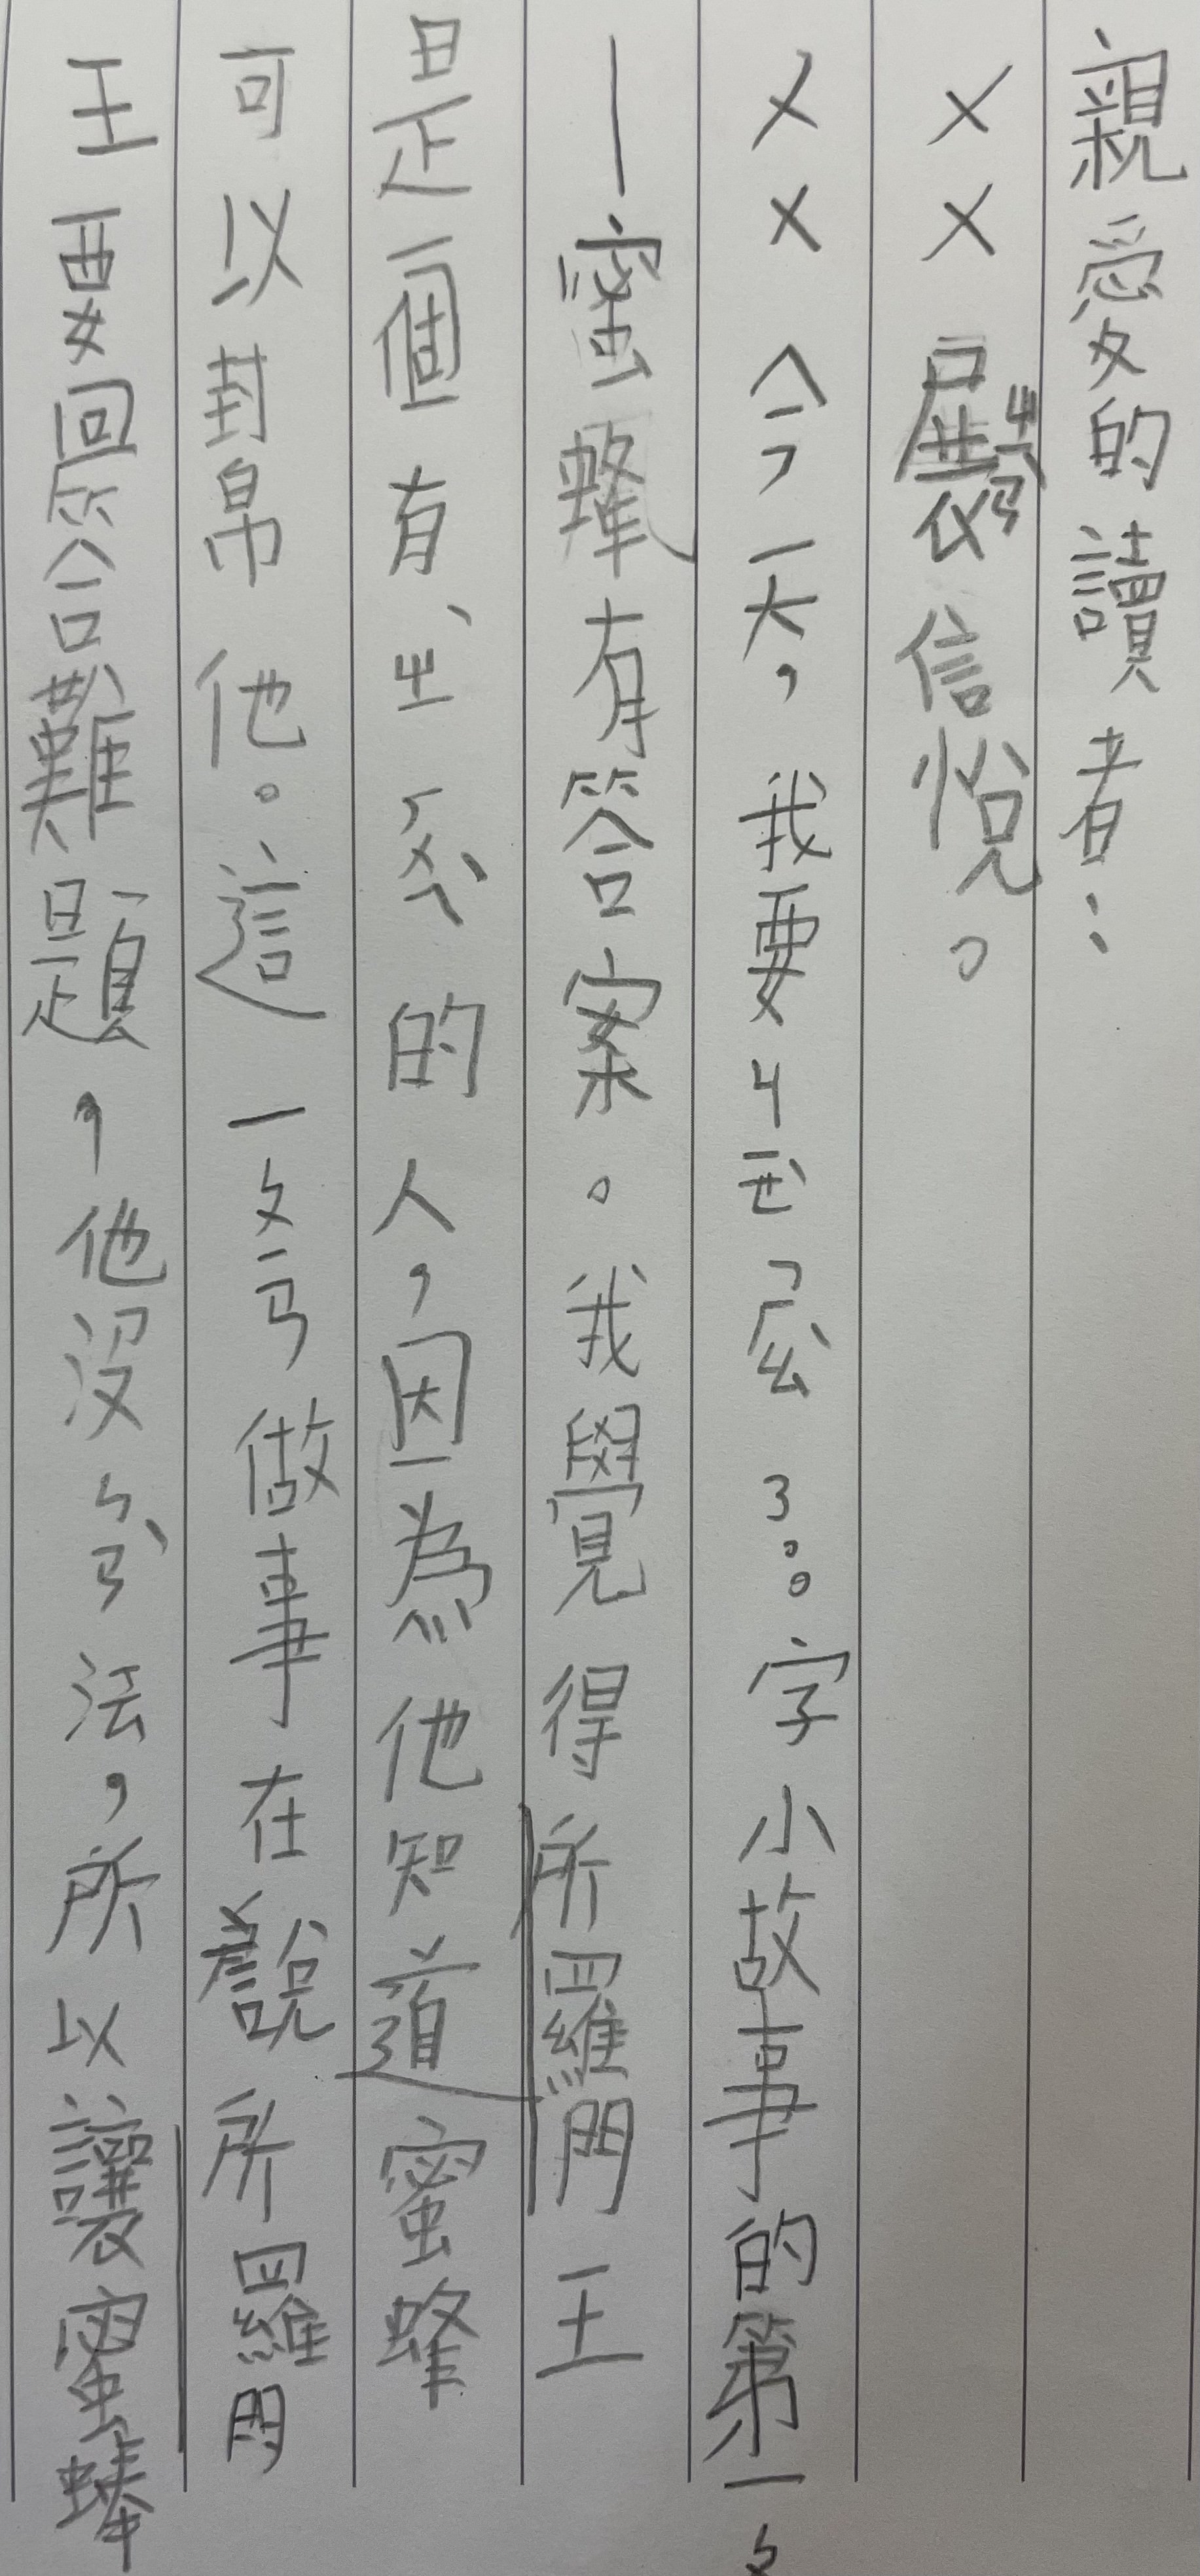 親愛的讀者：
××展ㄓㄢˇ信悅。
××今天，我要ㄐㄧㄝˋㄕㄠˋ300字小故事的第一ㄆ
—蜜蜂有答案。我覺得所羅門王
是一個有、ㄓㄏㄨㄟˋ的人，因為他知道蜜蜂
可以封帛他。這一ㄆㄧㄢ做事在說所羅門
王要回答難題，他沒ㄅㄢˋ法，所以讓蜜蜂